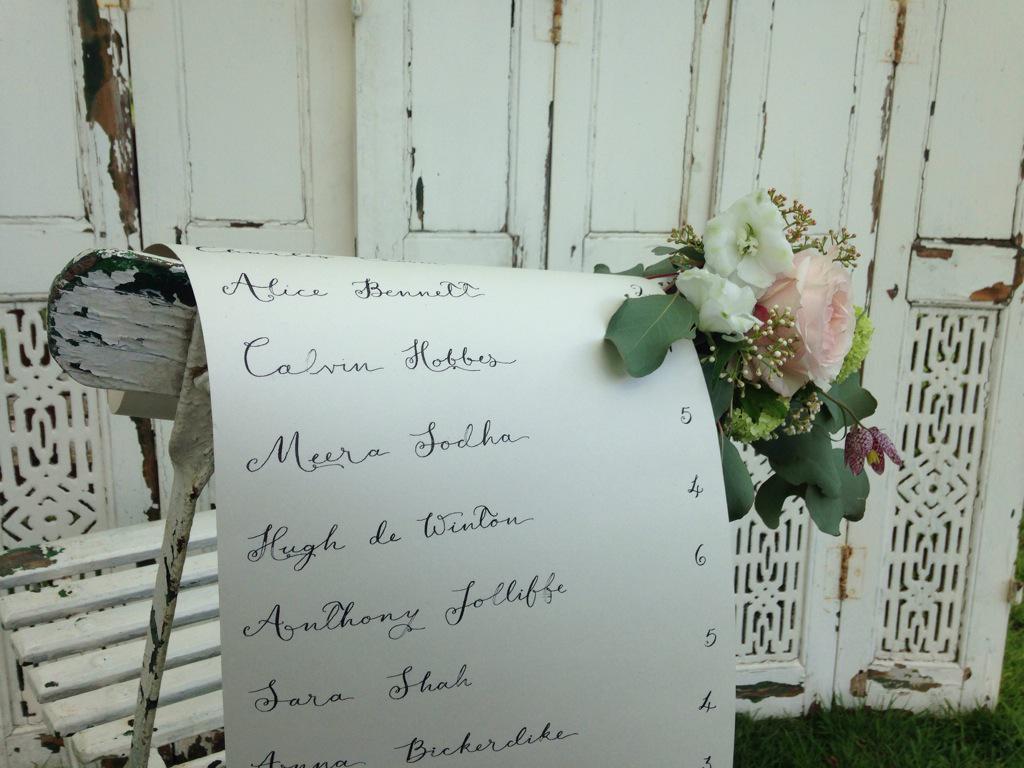 Alice Bennett
Calvin Hobbes
Meera Sodha 5
Hugh de Winton 4
Anthony Jolliffe 6
Sara Shah 5
Anna Bickerdike 4
3